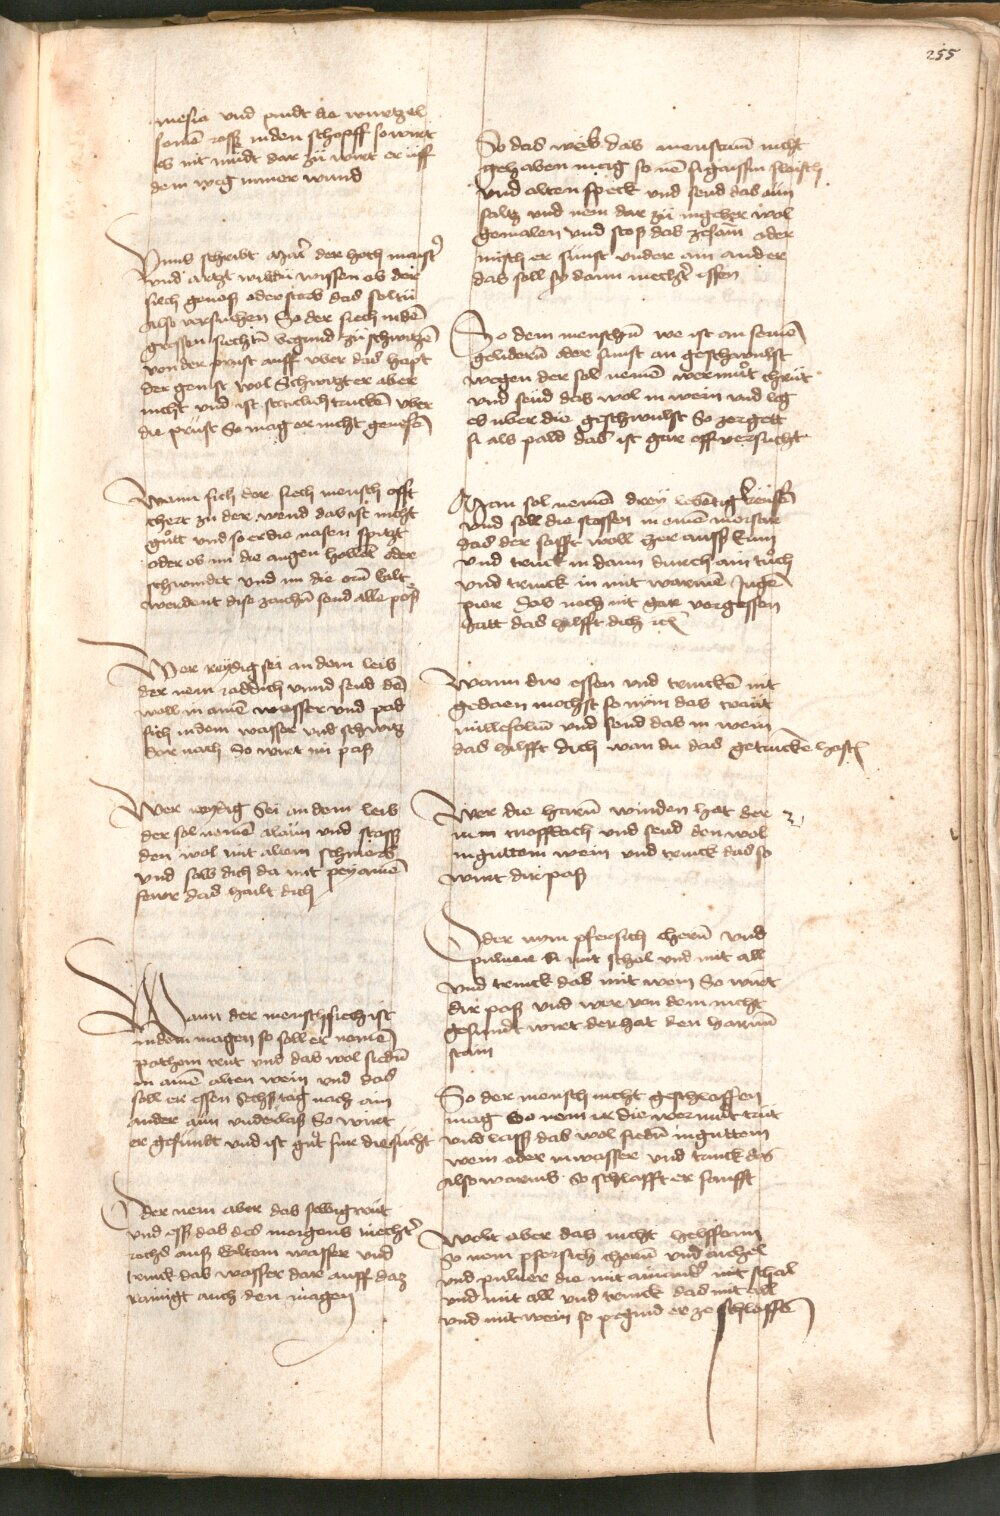 255
mesia vnd pindt die wurtzel
seinē roß in den schopff so wirt
es nit mudt dar zu wirt er vff
dem weg nimer wund
Vnns schribt der hoch maist̄
vnd artzt wiltu wissen ob der
siech genoß oder sterb das soltu
also versuchen So der siech in dē
grossen siechtū begind zu schwitzē
von der prust auff vber das hapt
der genist wol Schwitzt er aber
nicht vnd ist trucken vber
die prust So mag er nicht genesē
Wann sich der siech mensch offt
chert zu der wend das ist nicht
gutt vnd so er die nasen spitzt
oder ob im die augen howel oder
schwindet vnd im die orn kalt
werdent dise zaichn send alle poß
Wer reydig sei an dem leib
der nem raddich vnnd send dē
woll in ainē wasser vnd pad
sich in dem wasser vnd schwitz
dar nach So wirt im paß
Wer reydig Sei an dem leib
der sol nemē alaun vnd stoß
den wol mit altem schmerb
vnd salb dich da mit pey ainē
fewr das hailt dich
Wann der mensch siech ist
in dem magen so soll er nemē
pathonien crut vnd das wol siedn
in ainē alten wein vnd das
soll er essen Sechß tag nach ain
ander aun vnderlaß So wirt
er gesundt vnd ist gut fur die sucht
Oder nem aber das selbig crut
vnd eß das des morgens niecht̄
rochs auß kaltem wasser vnd
trinck das wasser dar auff daz
rainigt auch den magen
So das weib das menstruū nicht
gehaben mag so nē flaisch
vnd alten speck vnd send das aun
saltz vnd nem dar zu ingeber wol
gemalen vnd stoß das zesam oder
misch er sunst vnder ain ander
das soll sy dann niecht̄ essen
So dem menschn we ist an seinē
gelidern oder sunst an geschwulst
wegen der sol nemē wermut chrut
vnd seud das wol in wein vnd leg
es vber die geschwulst So zergett
si als pald das ist gar offt versucht
Man sol nemē drey lebetig kreusē
vnd soll die stossen in ainē morser
das der safft woll her auß kum
vnd truck in dann durch ain tuch
vnd trinck in mit warmē
pier das noch nit gar vergessen
hatt das hilfft dich
Wann dw essen vnd trinckē nit
gedaen mochst so nym das crutt
millefoliū vnd send das in wein
das hilfft dich wan du das getruncke hast
Wer die harn winden hat der
nem knofflach vnd seud den wol
in guttem wein vnd trinck das so
wirt dir paß
Oder nym pfersich chern vnd
puluer si mit schal vnd mit all
vnd trinck das mit wein So wirt
dir paß vnd wer von dem nicht
gesundt wirt der hat den harnn
stain
So der mensch nicht geschlaffen
mag So nem er die wermutt crut
vnd laß das wol siedn in guttem
wein oder in wasser vnd trinck das
also warmb So schlafft er sanfft
Wolt aber das nicht helffenn
So nem pfersich chern vnd aichel
vnd puluer die mit ainand̄ mit schal
vnd mit all vnd trinck das mit all
vnd mit wein so pegind er ze schlaffē